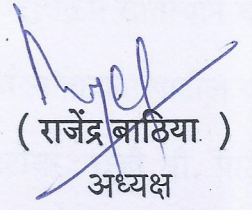 ( राजेंद्र बाठिया )
अध्यक्ष